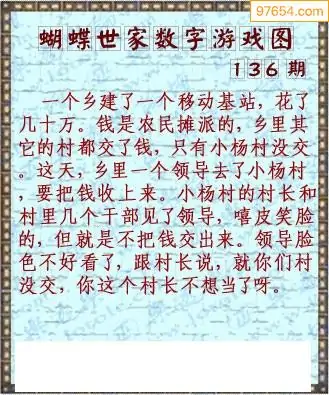 97654.com
蝴蝶世家数字游戏图
136 期
一个乡建了一个移动基站，花了
几十万。钱是农民摊派的，乡里其
它的村都交了钱，只有小杨村没交
。这天，乡里一个领导去了小杨村
，要把钱收上来。小杨村的村长和
村里几个干部见了领导，嘻皮笑脸
的，但就是不把钱交出来。领导脸
色不好看了，跟村长说，就你们村
没交，你这个村长不想当了呀。